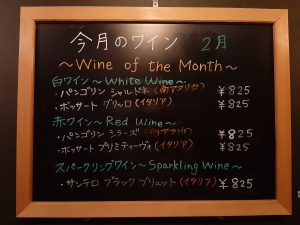 今月のワイン 2月
～Wine of the Month～
白ワイン～White Wine～
・パンゴリン シャルドネ (南アフリカ) ¥825
・ボッサート グリッロ (イタリア) ¥825
赤ワイン～Red Wine～
・パンゴリン シラーズ (南アフリカ) ¥825
・ボッサート プリミティーヴォ (イタリア) ¥825
スパークリングワイン～Sparkling Wine～
・サンテロ ブラック ブリュット (イタリア) ¥825